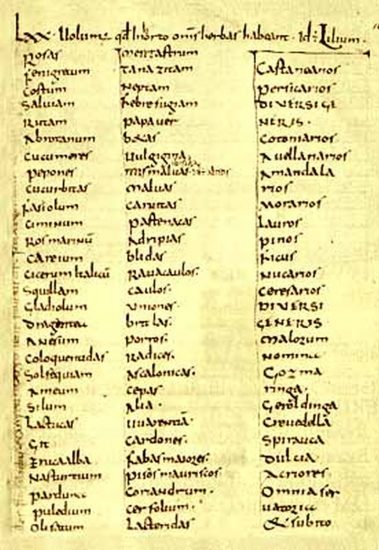 Lxx. Uolumꝰ qđ in horto omīs herbas habeant. Id ē Lilium.
Rosas
fenigrecum
Costum
Saluiam
Rutam
Abrotanum
Cucumeres
Pepones
Cucurbitas
Fasiolum
Ciminum
Ros marinū
Careium
Cicerum Italicū
Squillam
Gladiolum
Dragantea
Anesum
Coloquentidas
Solsequiam
Ameum
Silum
Lactucas
Git
Eruca alba
Nasturtium
Parduna
Puledium
Olisatum
Mentastrum
Tanazitam
Neptam
febrefugiam
Papauer
betas
Uulgigina
mismaluas
Maluas
Caruitas
Pastenacas
Adripias
blidas
Rauacaulos.
Caulos.
Uniones.
britlas.
Porros.
Radices.
Ascalonicas.
Cepas.
Alia.
Uuarentiā
Cardones.
Fabas maiores.
Pisos mauriscos.
Coriandrum.
Cerfolium.
Lacteridas
Castanearios
Persicarios
DIVERSI GE
NERIS.
Cotoniarios
Auellanarios
Amandala
rios
Morarios
Lauros
pinos
Ficus
Nucarios
Ceresarios
DIVERSI
GENERIS
Malorum
Nomina
Gozma
ringa.
Geroldinga
Creuedella
Spirauca
Dulcia
Acriores
Omnia ser
uatoria
& subito